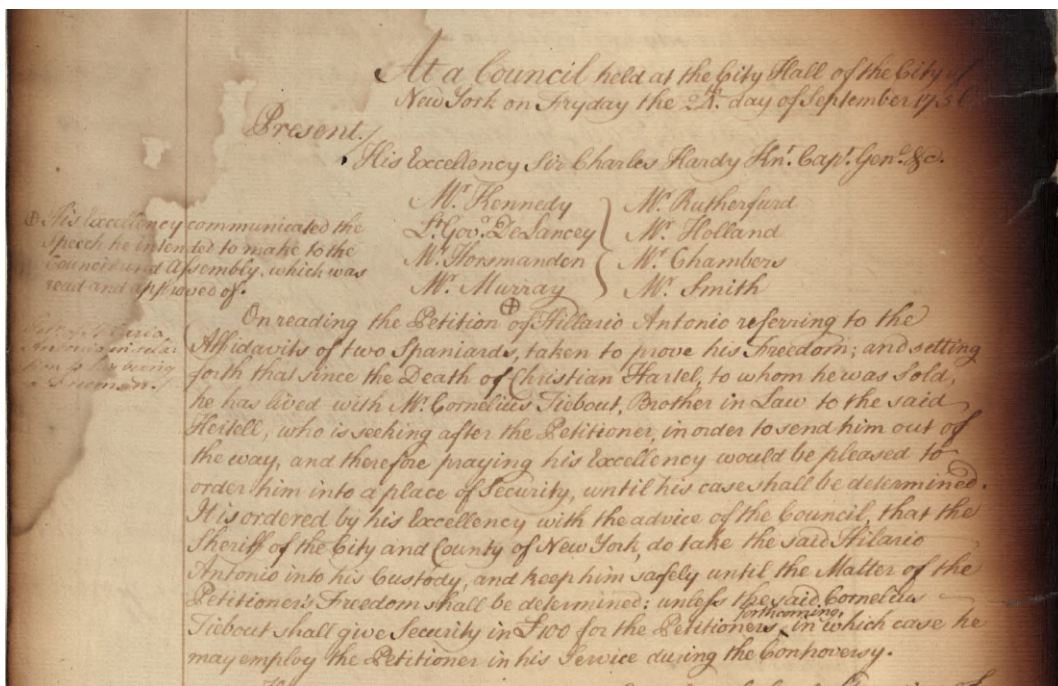 At a Council held at the City Hall of the City of
New York on Fryday the 24th. day of September 1756
Present.
His Excellency Sir Charles Hardy Knt. Capt. Genl. &c.
Mr. Kennedy
Lt. Govr. DeLancey
Mr. Horsmanden
Mr. Murray
Mr. Rutherfurd
Mr. Holland
Mr. Chambers
Mr. Smith
⊕ His Excellency communicated the
speech he intended to make to the
Council and Assembly, which was
read and approved of.
⊕
On reading the Petition of Hillario Antonio referring to the
Affidavits of two Spaniards, taken to prove his Freedom; and setting
forth that since the Death of Christian Hartel, to whom he was sold,
he has lived with Mr. Cornelius Tiebout, Brother in Law to the said
Hertell, who is seeking after the Petitioner, in order to send him out of
the way, and therefore praying his Excellency would be pleased to
order him into a place of Security, until his case shall be determined.
It is ordered by his Excellency with the advice of the Council, that the
Sheriff of the City and County of New York, do take the said Hilario
Antonio into his Custody, and keep him safely until the Matter of the
Petitioner's Freedom shall be determined: unless the said Cornelius
Tiebout shall give Security in £100 for the Petitioners forthcoming, in which case he
may employ the Petitioner in his Service during the Controversy.
Antonio in rela
tion to his being
a Freeman.